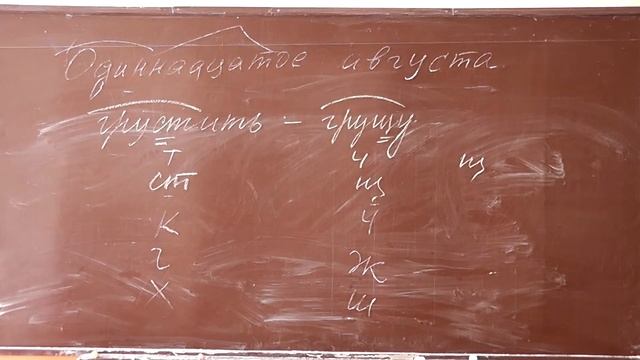 Одиннадцатое августа
грустить – грущу
т ч щ
ст щ
к ч
г ж
х ш